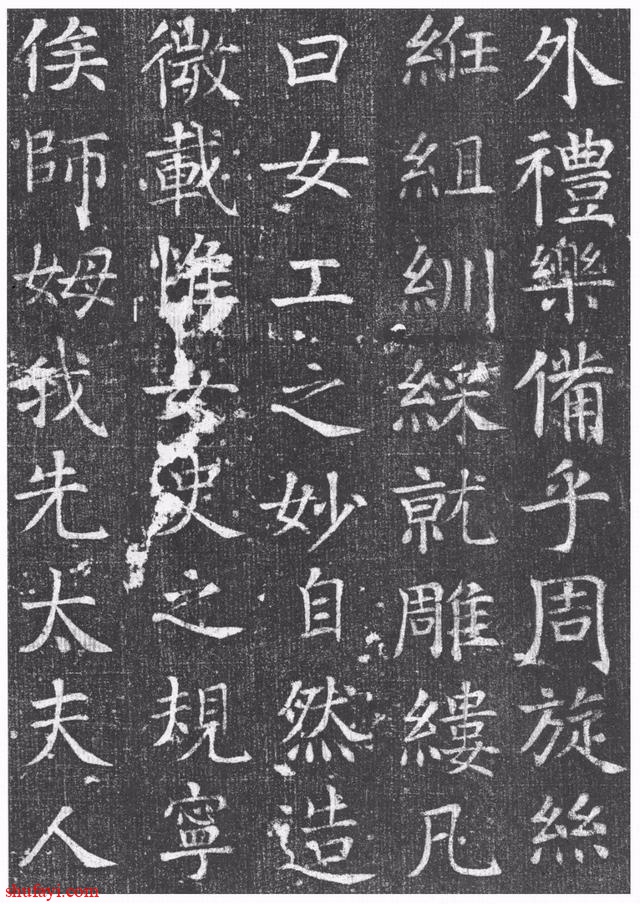 外禮樂備乎周旋絲
絍組紃綵就雕縷凡
曰女工之妙自然造
微載惟女史之規寧
俟師姆我先太夫人
shufayi.com